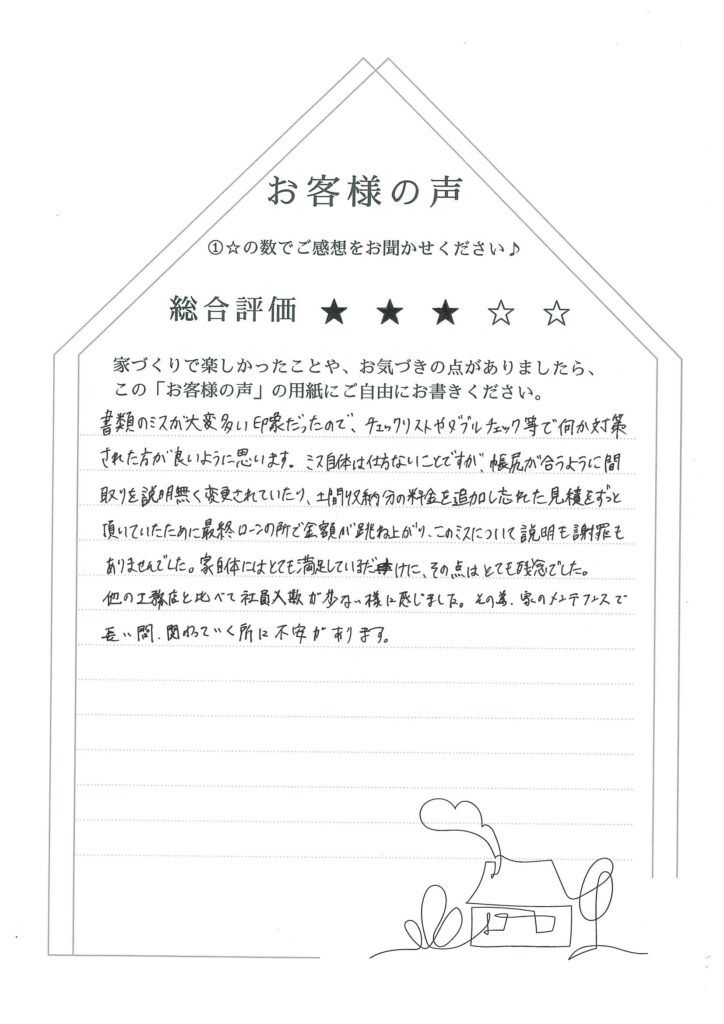 お客様の声
①☆の数でご感想をお聞かせください♪
総合評価 ★ ★ ★ ☆ ☆
家づくりで楽しかったことや、お気づきの点がありましたら、
この「お客様の声」の用紙にご自由にお書きください。
書類のミスが大変多い印象だったので、チェックリストやダブルチェック等で何か対策
された方が良いように思います。ミス自体は仕方ないことですが、帳尻が合うように間
取りを説明無く変更されていたり、土間収納分の料金を追加し忘れた見積をずっと
頂いていたために最終ローンの所で金額が跳ね上がり、このミスについて説明も謝罪も
ありませんでした。家自体にはとても満足しているだけに、その点はとても残念でした。
他の工務店と比べて社員人数が少ない様に感じました。その為、家のメンテナンスで
長い間、関わっていく所に不安があります。